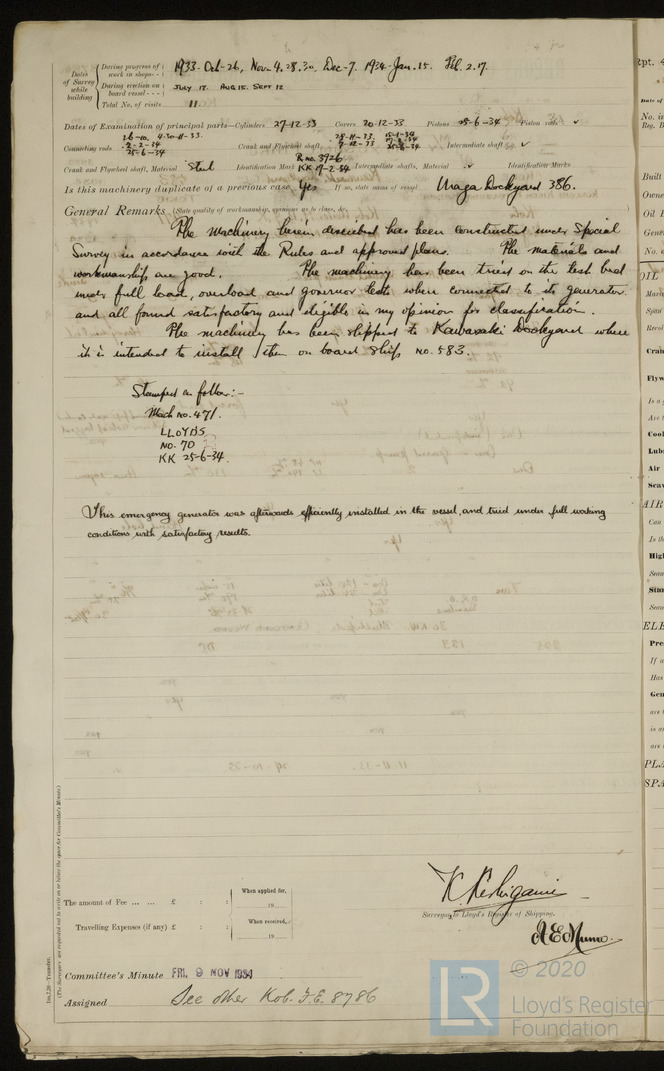 Dates of Survey while building
During progress of work in shops - - 1933 - Oct-26, Nov-4.28.30, Dec-7. 1934-Jan.15. Feb.2.17.
During erection on board vessel - - - JULY 17. AUG 15. SEPT 12
Total No. of visits 11
Dates of Examination of principal parts—Cylinders 27-12-33 Covers 20-12-33 Pistons 25-6-34 Piston rods ✓
Connecting rods 2-2-34 25-6-34 Crank and Flywheel shaft, 7-12-33 25-6-34 Intermediate shaft ✓
Crank and Flywheel shaft, Material Steel Identification Mark R no. 3726 KK 17-2-34 Intermediate shafts, Material ✓ Identification Marks
Is this machinery duplicate of a previous case Yes If so, state name of vessel Uraga Dockyard 386.
General Remarks (State quality of workmanship, opinions as to class, &c.
The machinery herein described has been constructed under Special
Survey in accordance with the Rules and approved plans. The materials and
workmanship are good. The machinery has been tried on the test bed
under full load, overload and governor tests when connected to its generator
and all found satisfactory and eligible in my opinion for classification.
The machinery has been shipped to Kawasaki Dockyard where
it is intended to install them on board Ship No. 583.
Stamped as follow:-
Mach no. 471.
LLOYDS
NO. 70
KK 25-6-34.
This emergency generator was afterwards efficiently installed in the vessel, and tried under full working
conditions with satisfactory results.
The amount of Fee ... ... £ : : When applied for, 19
Travelling Expenses (if any) £ : : When received, 19
Surveyor to Lloyd's Register of Shipping.
Committee's Minute FRI. 9 NOV 1934
Assigned See other Kob. F.E. 8786
(The Surveyors are requested not to write on or below the space for Committee's Minute.)
© 2020
LR
Lloyd's Register
Foundation
Rpt. 4
Built
Owne
Oil
Gene
No. o
OIL
Span
Revol
Cran
Flyw
Is a
Are t
Cool
Lub
Air
Scav
AIR
Can
Is th
High
Star
ELE
Pre
If a
Has
Gen
are t
is a
are
PLA
SPA